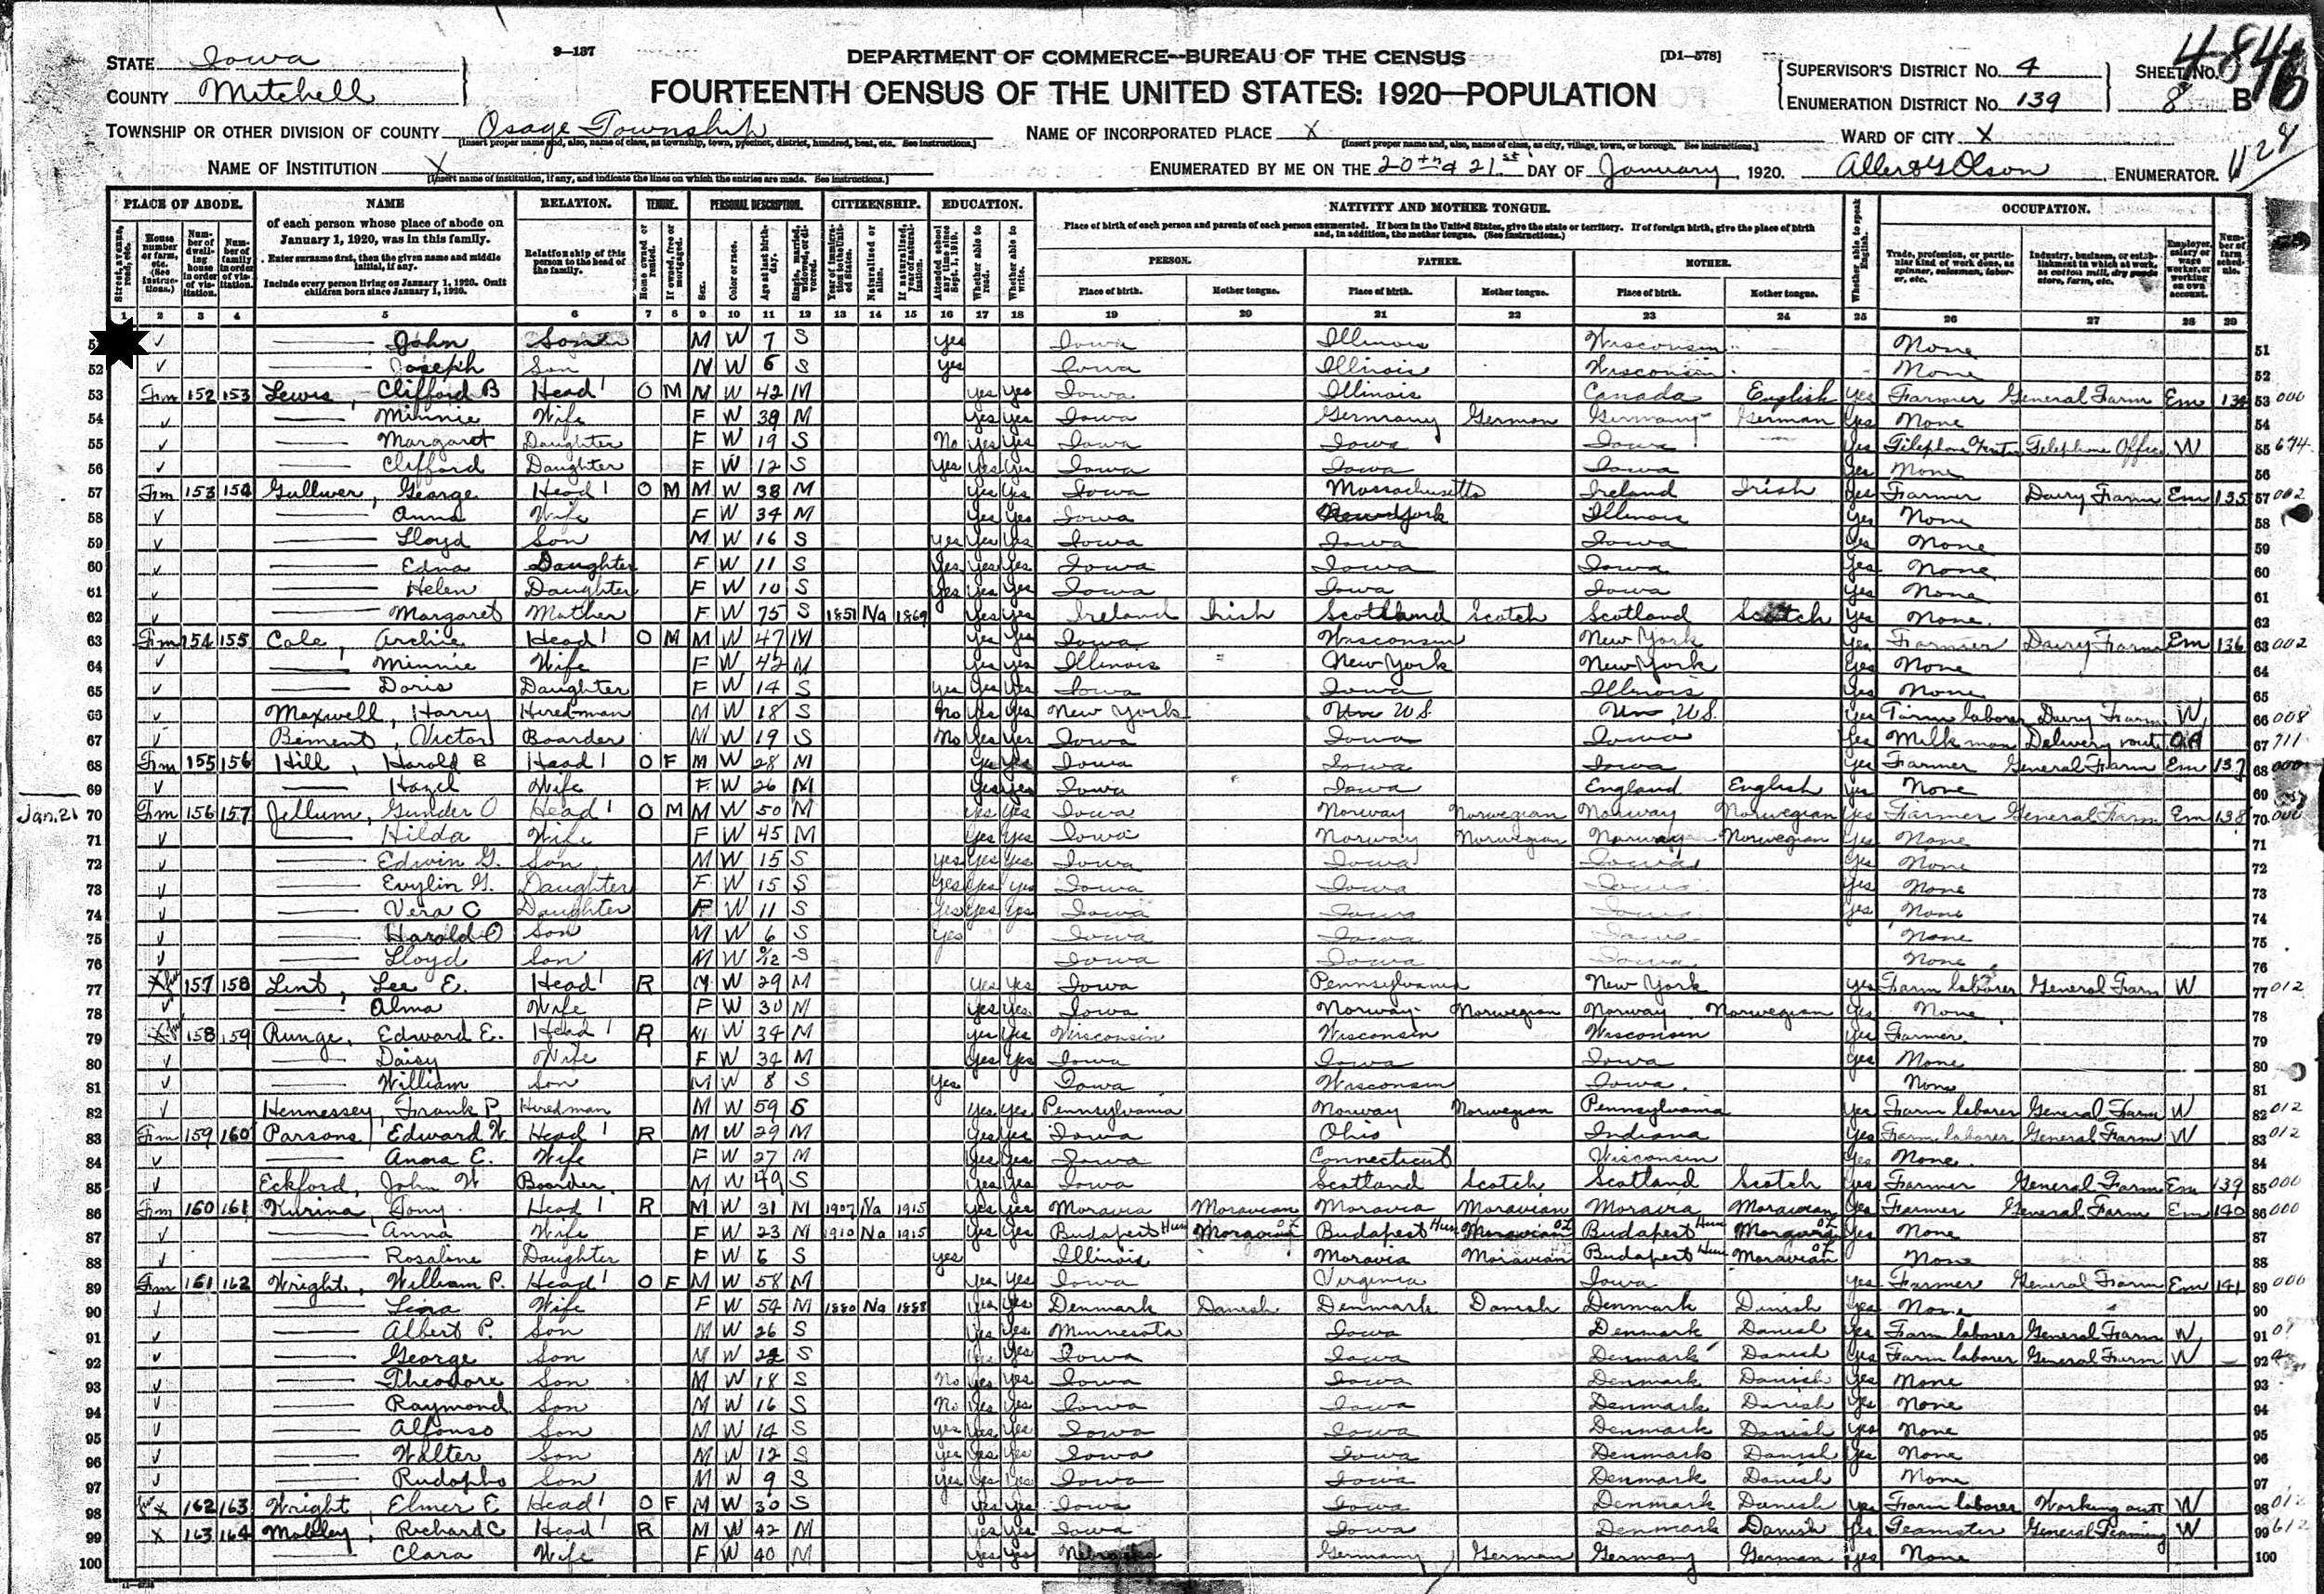 9—137
DEPARTMENT OF COMMERCE—BUREAU OF THE CENSUS
[D1—578]
FOURTEENTH CENSUS OF THE UNITED STATES: 1920—POPULATION
STATE Iowa
COUNTY Mitchell
SUPERVISOR'S DISTRICT No. 4
ENUMERATION DISTRICT No. 139
SHEET No. 8 B
TOWNSHIP OR OTHER DIVISION OF COUNTY Osage Township
NAME OF INCORPORATED PLACE X
WARD OF CITY X
NAME OF INSTITUTION X
ENUMERATED BY ME ON THE 20th & 21st DAY OF January, 1920. Olson ENUMERATOR.
PLACE OF ABODE. NAME RELATION. TENURE. PERSONAL DESCRIPTION. CITIZENSHIP. EDUCATION. NATIVITY AND MOTHER TONGUE. OCCUPATION.
of each person whose place of abode on January 1, 1920, was in this family.
Enter surname first, then the given name and middle initial, if any.
Include every person living on January 1, 1920. Omit children born since January 1, 1920.
Relationship of this person to the head of the family.
Place of birth of each person and parents of each person enumerated. If born in the United States, give the state or territory. If of foreign birth, give the place of birth and, in addition, the mother tongue. (See instructions.)
PERSON. FATHER. MOTHER.
Place of birth. Mother tongue. Place of birth. Mother tongue. Place of birth. Mother tongue.
1 2 3 4 5 6 7 8 9 10 11 12 13 14 15 16 17 18 19 20 21 22 23 24 25 26 27 28 29
John Son M W 7 S yes Iowa Illinois Wisconsin None 51
52 Joseph Son M W 6 S yes Iowa Illinois Wisconsin None 52
53 Fm 152 153 Lewis, Clifford B Head 1 O M M W 42 M yes yes Iowa Illinois Canada English yes Farmer General Farm Em 134 53 000
54 Minnie Wife F W 39 M yes yes Iowa Germany German Germany German yes None 54
55 Margaret Daughter F W 19 S No yes yes Iowa Iowa Iowa yes Telephone Telephone Office W 55 674
56 Clifford Daughter F W 12 S yes yes yes Iowa Iowa Iowa yes None 56
57 Fm 153 154 Gulliver, George Head 1 O M M W 38 M yes yes Iowa Massachusetts Ireland Irish yes Farmer Dairy Farm Em 135 57 002
58 Anna Wife F W 34 M yes yes Iowa New York Illinois yes None 58
59 Lloyd Son M W 16 S yes yes yes Iowa Iowa Iowa yes None 59
60 Edna Daughter F W 11 S yes yes yes Iowa Iowa Iowa yes None 60
61 Helen Daughter F W 10 S yes yes yes Iowa Iowa Iowa yes None 61
62 Margaret Mother F W 75 S 1851 Na 1869 yes yes Ireland Irish Scotland Scotch Scotland Scotch yes None 62
63 Fm 154 155 Cole, Archie Head 1 O M M W 47 M yes yes Iowa Wisconsin New York yes Farmer Dairy Farm Em 136 63 002
64 Minnie Wife F W 42 M yes yes Illinois New York New York yes None 64
65 Doris Daughter F W 14 S yes yes yes Iowa Iowa Illinois yes None 65
66 Maxwell, Harry Hiredman M W 18 S No yes yes New York Un U.S. Un U.S. yes Farm laborer Dairy Farm W 66 008
67 Bement, Victor Boarder M W 19 S No yes yes Iowa Iowa Iowa yes Milk man Delivery route OA 67 711
68 Fm 155 156 Hill, Harold B Head 1 O F M W 28 M yes yes Iowa Iowa Iowa yes Farmer General Farm Em 137 68 000
69 Hazel Wife F W 26 M yes yes Iowa Iowa England English yes None 69
Jan. 21 70 Fm 156 157 Jellum, Gunder O Head 1 O M M W 50 M yes yes Iowa Norway Norwegian Norway Norwegian yes Farmer General Farm Em 138 70 000
71 Hilda Wife F W 45 M yes yes Iowa Norway Norwegian Norway Norwegian yes None 71
72 Edwin G. Son M W 15 S yes yes yes Iowa Iowa Iowa yes None 72
73 Evylin G. Daughter F W 15 S yes yes yes Iowa Iowa Iowa yes None 73
74 Vera C Daughter F W 11 S yes yes yes Iowa Iowa Iowa yes None 74
75 Harold O Son M W 6 S yes Iowa Iowa Iowa None 75
76 Lloyd Son M W S Iowa Iowa Iowa None 76
77 157 158 Lint, Lee E. Head 1 R M W 29 M yes yes Iowa Pennsylvania New York yes Farm laborer General Farm W 77 012
78 Alma Wife F W 30 M yes yes Iowa Norway Norwegian Norway Norwegian yes None 78
79 158 159 Runge, Edward E. Head 1 R M W 34 M yes yes Wisconsin Wisconsin Wisconsin yes Farmer 79
80 Daisy Wife F W 34 M yes yes Iowa Iowa Iowa yes None 80
81 William Son M W 8 S yes Iowa Wisconsin Iowa None 81
82 Hennessey, Frank P. Hiredman M W 59 S yes yes Pennsylvania Norway Norwegian Pennsylvania yes Farm laborer General Farm W 82 012
83 Fm 159 160 Parsons, Edward W. Head 1 R M W 29 M yes yes Iowa Ohio Indiana yes Farm laborer General Farm W 83 012
84 Anna E. Wife F W 27 M yes yes Iowa Connecticut Wisconsin yes None 84
85 Eckford, John W Boarder M W 49 S yes yes Iowa Scotland Scotch Scotland Scotch yes Farmer General Farm Em 139 85 000
86 Fm 160 161 Kurina, Tony Head 1 R M W 31 M 1907 Na 1915 yes yes Moravia Moravian Moravia Moravian Moravia Moravian yes Farmer General Farm Em 140 86 000
87 Anna Wife F W 23 M 1910 Na 1915 yes yes Budapest Hun Moravian Budapest Hun Moravian Budapest Hun Moravian yes None 87
88 Rosaline Daughter F W 6 S yes Illinois Moravia Moravian Budapest Hun Moravian None 88
89 Fm 161 162 Wright, William P. Head 1 O F M W 58 M yes yes Iowa Virginia Iowa yes Farmer General Farm Em 141 89 000
90 Lina Wife F W 54 M 1880 Na 1888 yes yes Denmark Danish Denmark Danish Denmark Danish yes None 90
91 Albert P. Son M W 26 S yes yes Minnesota Iowa Denmark Danish yes Farm laborer General Farm W 91
92 George Son M W S yes yes Iowa Iowa Denmark Danish yes Farm laborer General Farm W 92
93 Theodore Son M W 18 S No yes yes Iowa Iowa Denmark Danish yes None 93
94 Raymond Son M W 16 S No yes yes Iowa Iowa Denmark Danish yes None 94
95 Alfonso Son M W 14 S yes yes yes Iowa Iowa Denmark Danish yes None 95
96 Walter Son M W 12 S yes yes yes Iowa Iowa Denmark Danish yes None 96
97 Rudolpho Son M W 9 S yes yes yes Iowa Iowa Denmark Danish None 97
98 X 162 163 Wright, Elmer E Head 1 O F M W 30 S yes yes Iowa Iowa Denmark Danish yes Farm laborer Working out W 98 012
99 X 163 164 Richard C Head 1 R M W 42 M yes yes Iowa Iowa Denmark Danish yes Teamster General Teaming W 99 612
100 Clara Wife F W 40 M yes yes Nebraska Germany German Germany German yes None 100